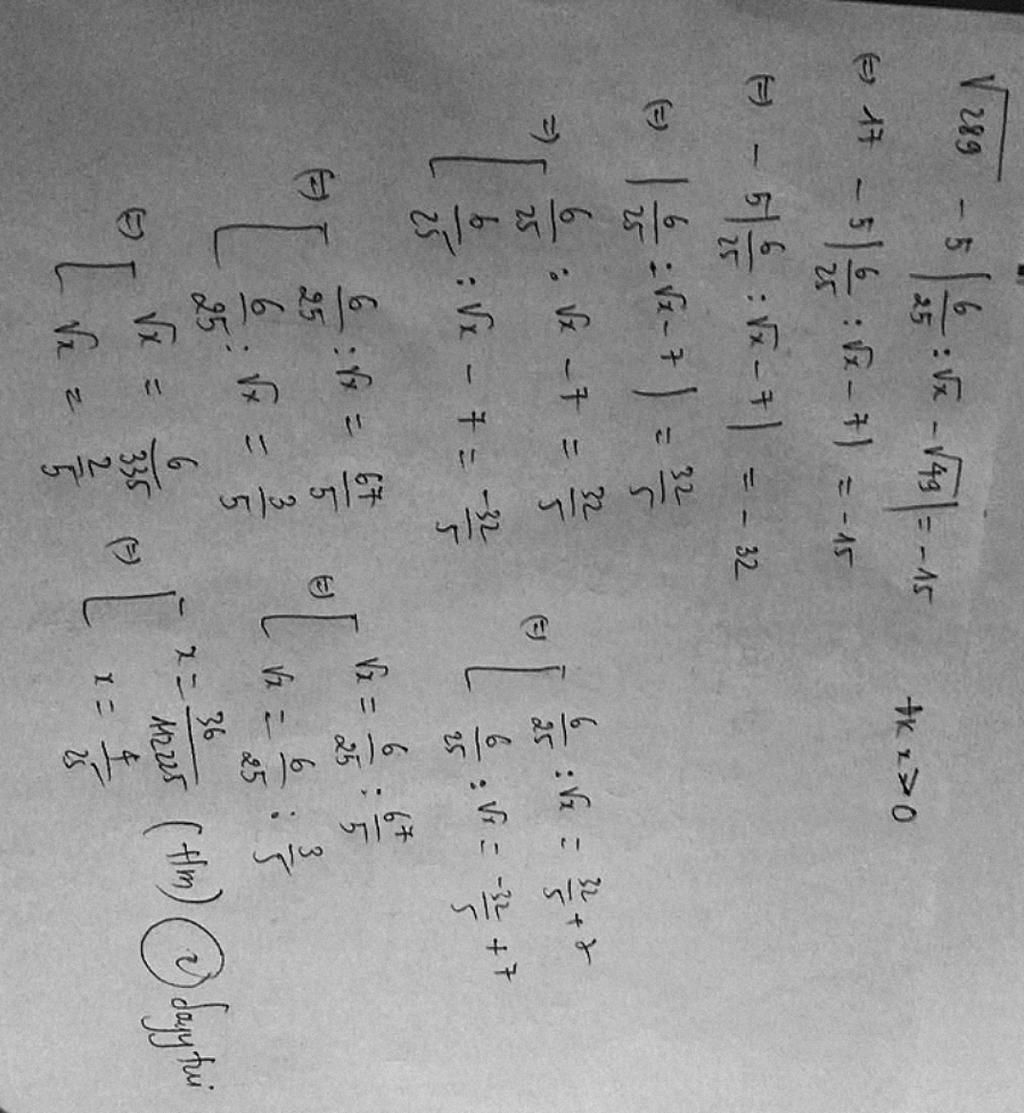 √289 - 5 | 6/25 : √x - √49 | = -15
đk x > 0
(=) 17 - 5 | 6/25 : √x - 7 | = -15
(=) - 5 | 6/25 : √x - 7 | = - 32
(=) | 6/25 : √x - 7 | = 32/5
=) [ 6/25 : √x - 7 = 32/5
6/25 : √x - 7 = -32/5
(=) [ 6/25 : √x = 32/5 + 7
6/25 : √x = -32/5 + 7
(=) [ 6/25 : √x = 67/5
6/25 : √x = 3/5
(=) [ √x = 6/25 : 67/5
√x = 6/25 : 3/5
(=) [ √x = 6/335
√x = 2/5
(=) [ x = 36/112225
x = 4/25
(t/m)